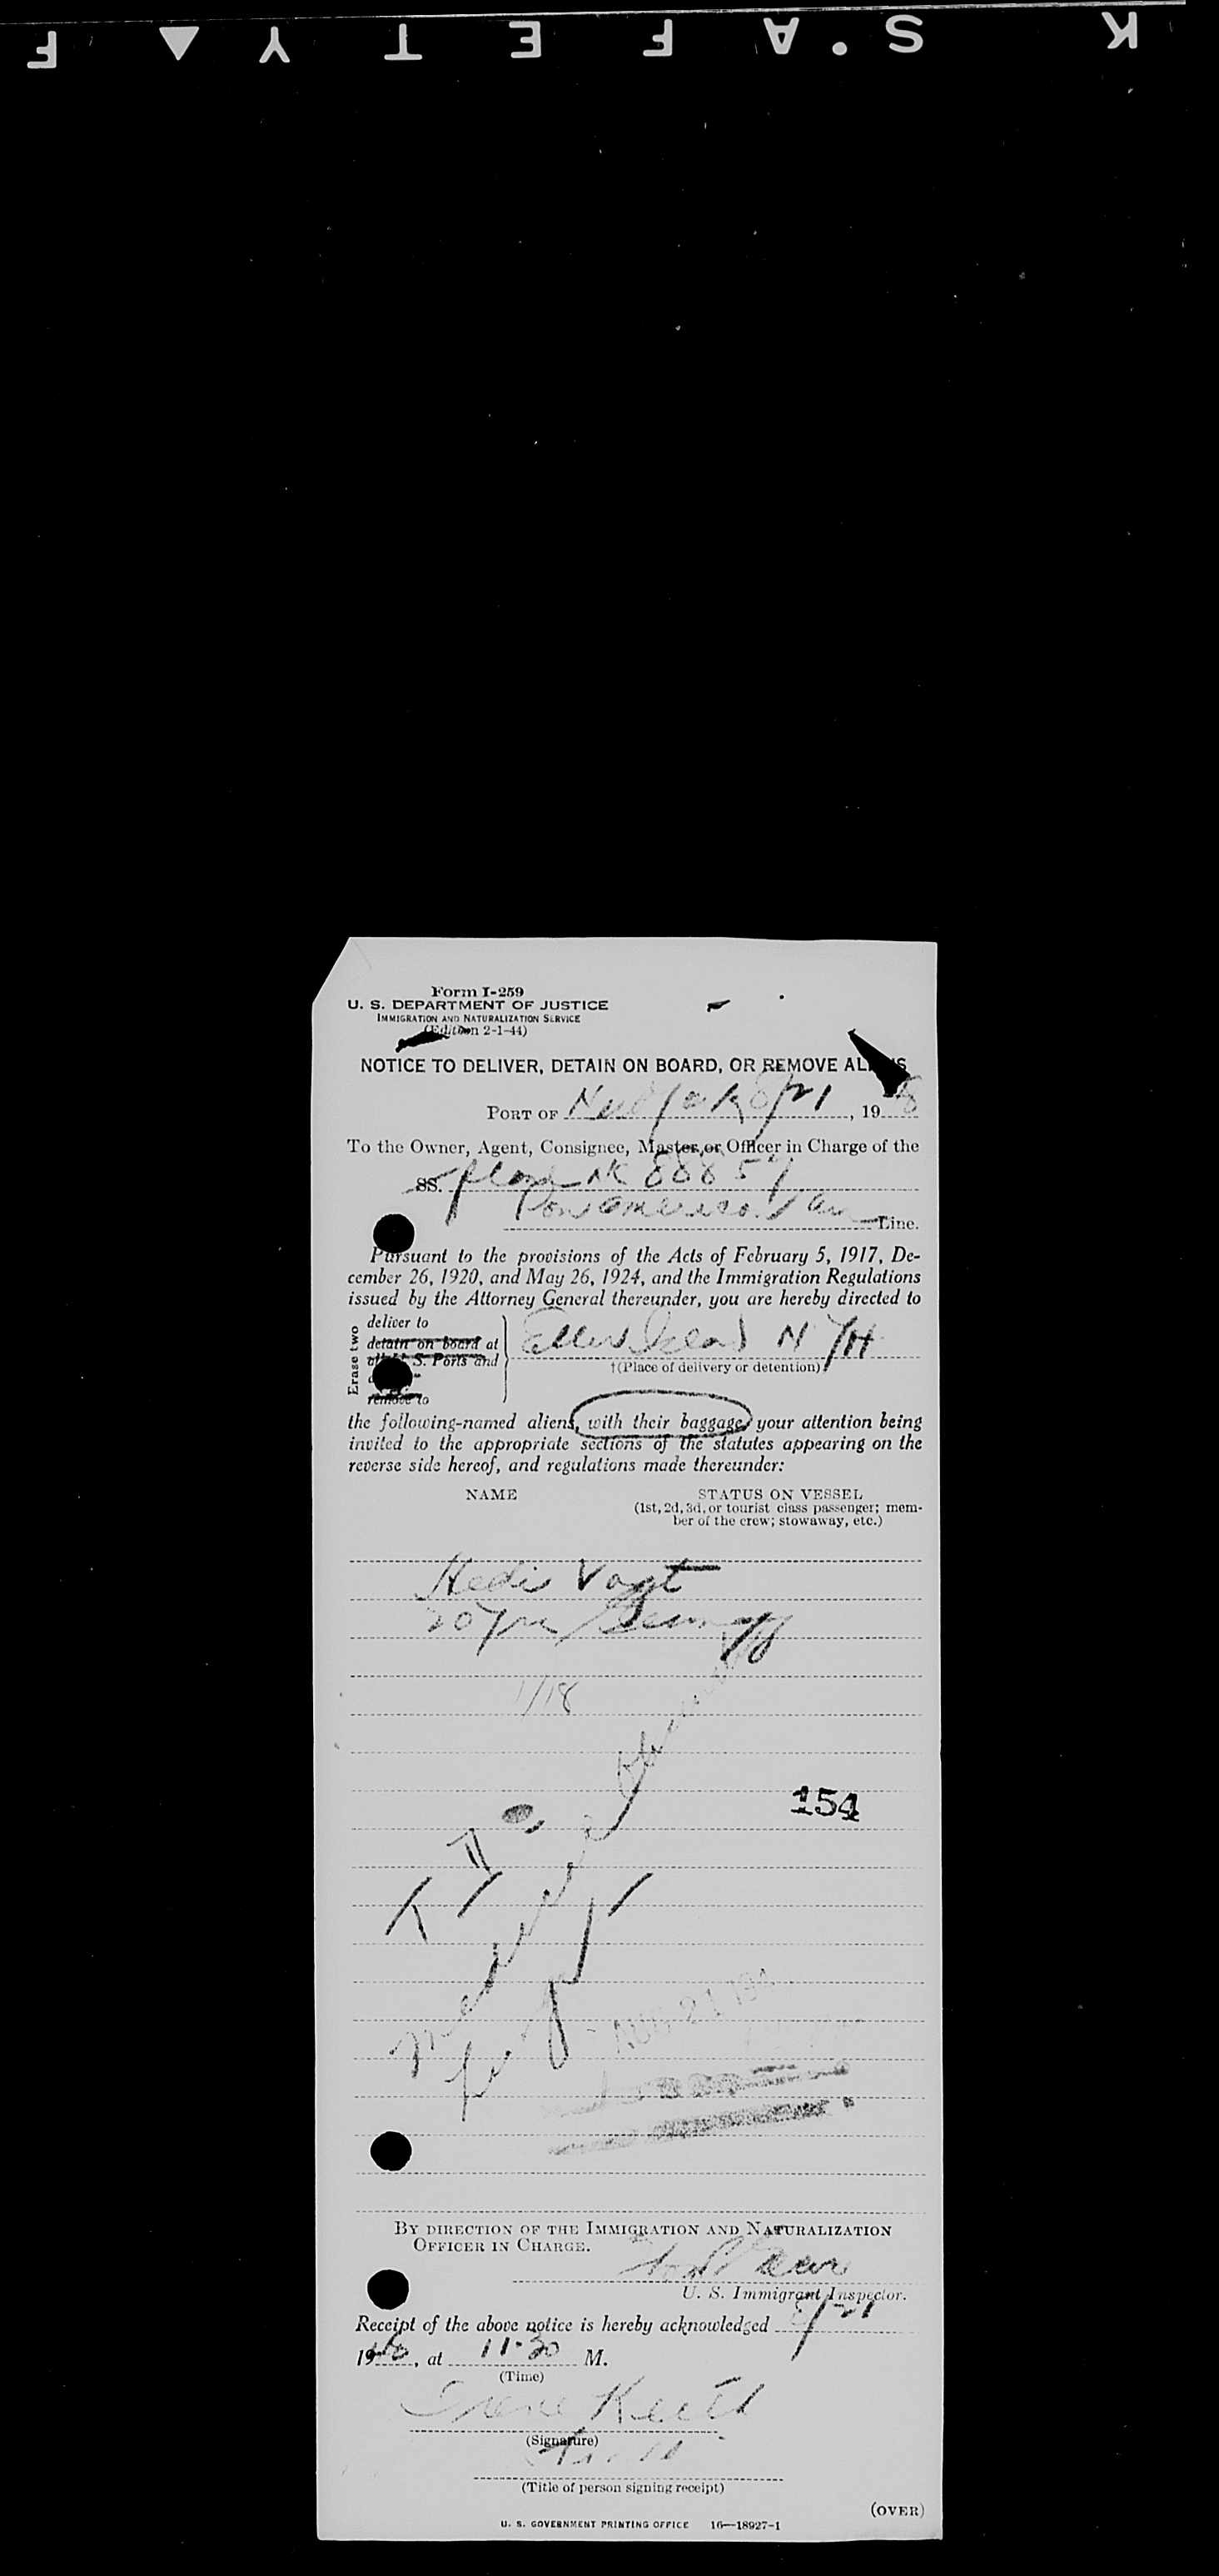 K S'AFETY F
Form I-259
U. S. DEPARTMENT OF JUSTICE
IMMIGRATION AND NATURALIZATION SERVICE
(Edition 2-1-44)
NOTICE TO DELIVER, DETAIN ON BOARD, OR REMOVE ALIENS
PORT OF New York 8/21, 1948
To the Owner, Agent, Consignee, Master, or Officer in Charge of the
SS. Plane NK 88857
Pan America Line.
Pursuant to the provisions of the Acts of February 5, 1917, De-
cember 26, 1920, and May 26, 1924, and the Immigration Regulations
issued by the Attorney General thereunder, you are hereby directed to
Erase two
deliver to
detain on board at
S. Ports and
remove to
Ellis Island N Y H
†(Place of delivery or detention)
the following-named aliens, with their baggage, your attention being
invited to the appropriate sections of the statutes appearing on the
reverse side hereof, and regulations made thereunder:
NAME
STATUS ON VESSEL
(1st, 2d, 3d, or tourist class passenger; mem-
ber of the crew; stowaway, etc.)
Hedi Vogt
20 yrs
1/18
154
AUG 21 194
BY DIRECTION OF THE IMMIGRATION AND NATURALIZATION
OFFICER IN CHARGE.
U. S. Immigrant Inspector.
Receipt of the above notice is hereby acknowledged 8/21
1948, at 11:30 M.
(Time)
Irene Keith
(Signature)
(Title of person signing receipt)
(OVER)
U. S. GOVERNMENT PRINTING OFFICE 16—18927-1